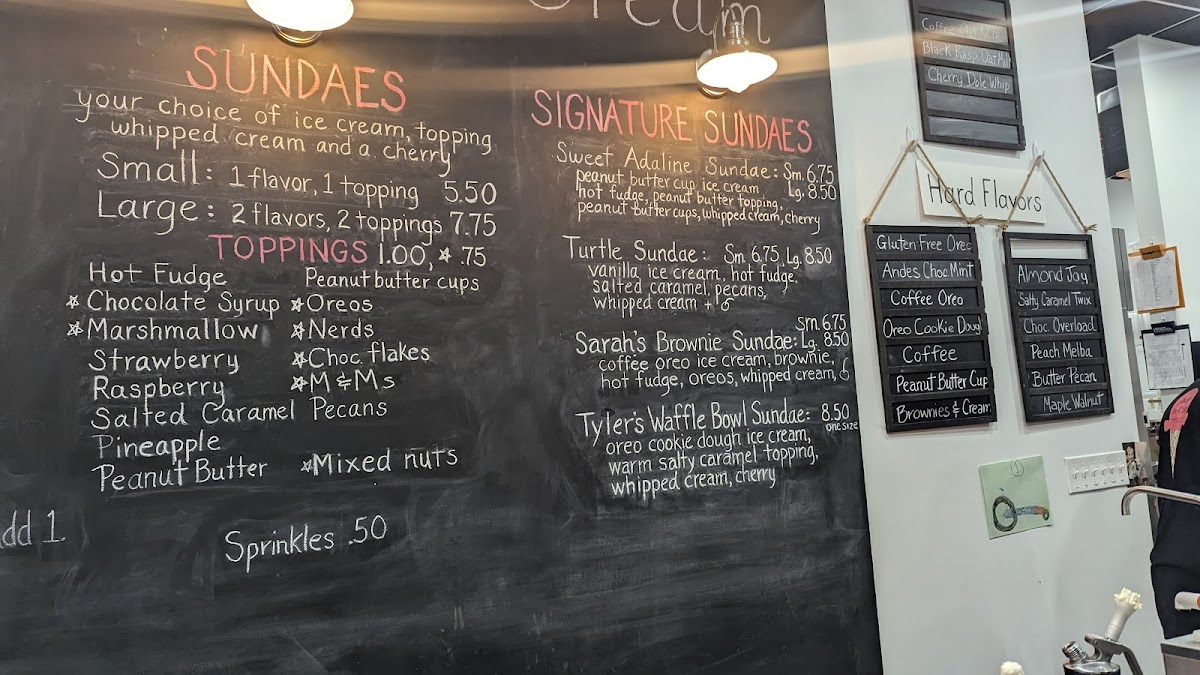 Cream
SUNDAES
your choice of ice cream, topping
whipped cream and a cherry
Small: 1 flavor, 1 topping 5.50
Large: 2 flavors, 2 toppings 7.75
TOPPINGS 1.00, ☆ .75
Hot Fudge
☆ Chocolate Syrup
☆ Marshmallow
Strawberry
Raspberry
Salted Caramel
Pineapple
Peanut Butter
Peanut butter cups
☆ Oreos
☆ Nerds
☆ Choc. flakes
☆ M&Ms
Pecans
☆ Mixed nuts
dd 1.
Sprinkles .50
SIGNATURE SUNDAES
Sweet Adaline Sundae: Sm. 6.75
peanut butter cup ice cream Lg. 8.50
hot fudge, peanut butter topping,
peanut butter cups, whipped cream, cherry
Turtle Sundae: Sm 6.75, Lg. 8.50
vanilla ice cream, hot fudge,
salted caramel, pecans,
whipped cream +
Sm. 6.75
Sarah's Brownie Sundae: Lg. 8.50
coffee oreo ice cream, brownie,
hot fudge, oreos, whipped cream,
Tyler's Waffle Bowl Sundae: 8.50
one size
oreo cookie dough ice cream,
warm salty caramel topping,
whipped cream, cherry
Coffee
Black Rasp. Oat Milk
Cherry Dole Whip
Hard Flavors
Gluten Free Oreo
Andes Choc. Mint
Coffee Oreo
Oreo Cookie Dough
Coffee
Peanut Butter Cup
Brownies & Cream
Almond Joy
Salty Caramel Twix
Choc Overload
Peach Melba
Butter Pecan
Maple Walnut